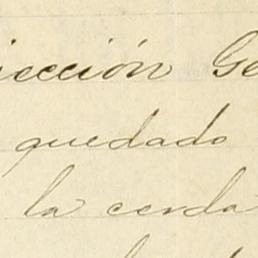 irección Ge
quedado
la cerda